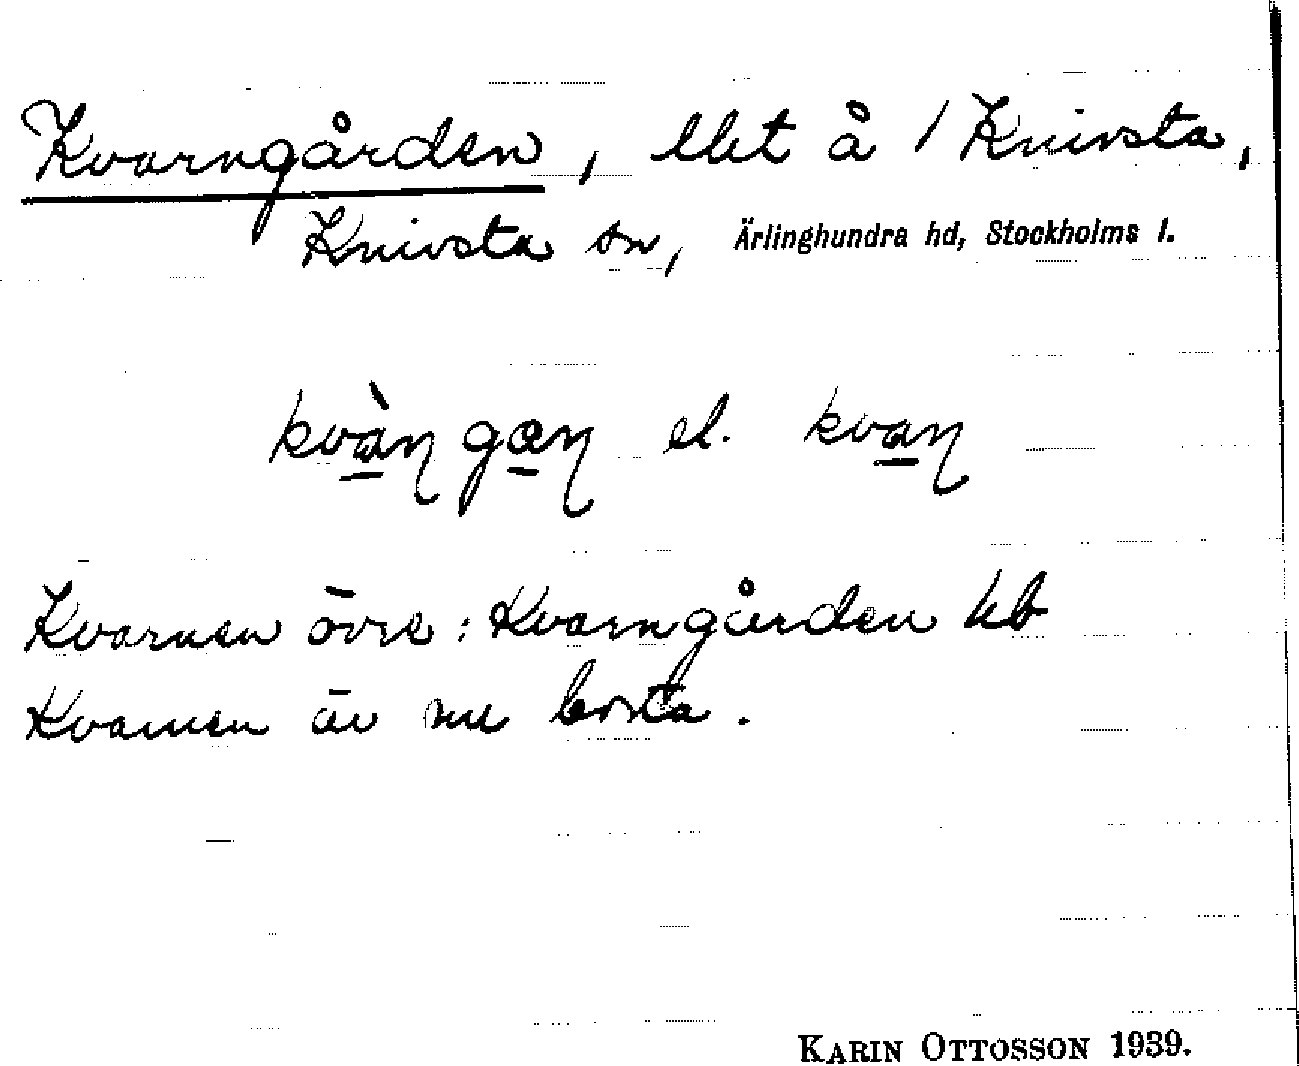 Kvarngården, llet å / Knivsta,
Knivsta sn, Ärlinghundra hd, Stockholms l.
kvàɳ gaɳ el. kvaɳ
Kvarnen övre : Kvarngården kb
Kvarnen är nu borta.
KARIN OTTOSSON 1939.